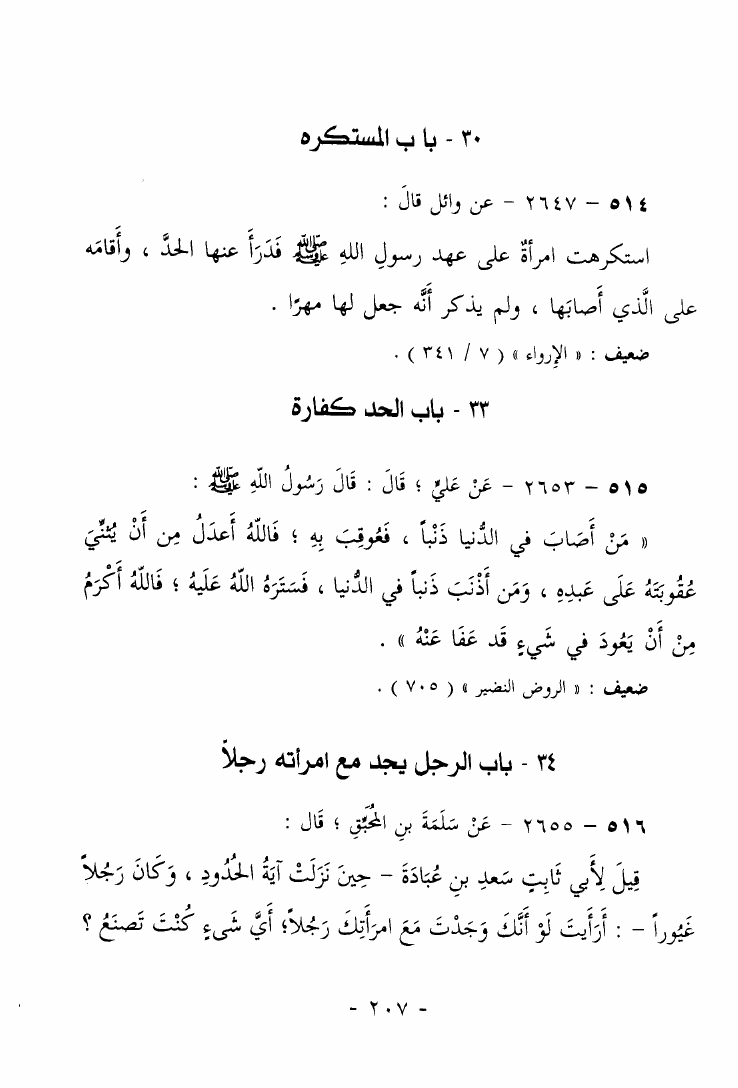 ٣٠ - باب المستكره
٥١٤ - ٢٦٤٧ - عن وائل قالَ :
استكرهت امرأةٌ على عهد رسولِ اللهِ ﷺ فَدَرَأَ عنها الحدَّ ، وأَقامَه
على الَّذي أَصابَها ، ولم يذكر أَنَّه جعل لها مهرًا .
ضعيف : « الإِرواء » ( ٧ / ٣٤١ ) .
٣٣ - باب الحد كفارة
٥١٥ - ٢٦٥٣ - عَنْ عَليٍّ ؛ قَالَ : قَالَ رَسُولُ اللّهِ ﷺ :
« مَنْ أَصَابَ في الدُّنيا ذَنْباً ، فَعُوقِبَ بِهِ ؛ فَاللّهُ أَعدَلُ مِن أَنْ يُثنِّيَ
عُقُوبَتَهُ عَلَى عَبدِهِ ، وَمَن أَذْنَبَ ذَنباً في الدُّنيا ، فَسَتَرَهُ اللّهُ عَلَيهُ ؛ فَاللّهُ أَكْرَمُ
مِنْ أَنْ يَعُودَ في شَيءٍ قَد عَفَا عَنْهُ » .
ضعيف : « الروض النضير » ( ٧٠٥ ) .
٣٤ - باب الرجل يجد مع امرأته رجلاً
٥١٦ - ٢٦٥٥ - عَنْ سَلَمَةَ بنِ المُحَبَّقِ ؛ قَال :
قِيلَ لِأَبي ثَابِتٍ سَعدِ بنِ عُبَادَةَ - حِينَ نَزَلَتْ آيَةُ الحُدُودِ ، وَكَانَ رَجُلاً
غَيُوراً - : أَرَأَيتَ لَوْ أَنَّكَ وَجَدْتَ مَعَ امرَأَتِكَ رَجُلاً؛ أَيَّ شَيءٍ كُنْتَ تَصنَعُ ؟
- ٢٠٧ -